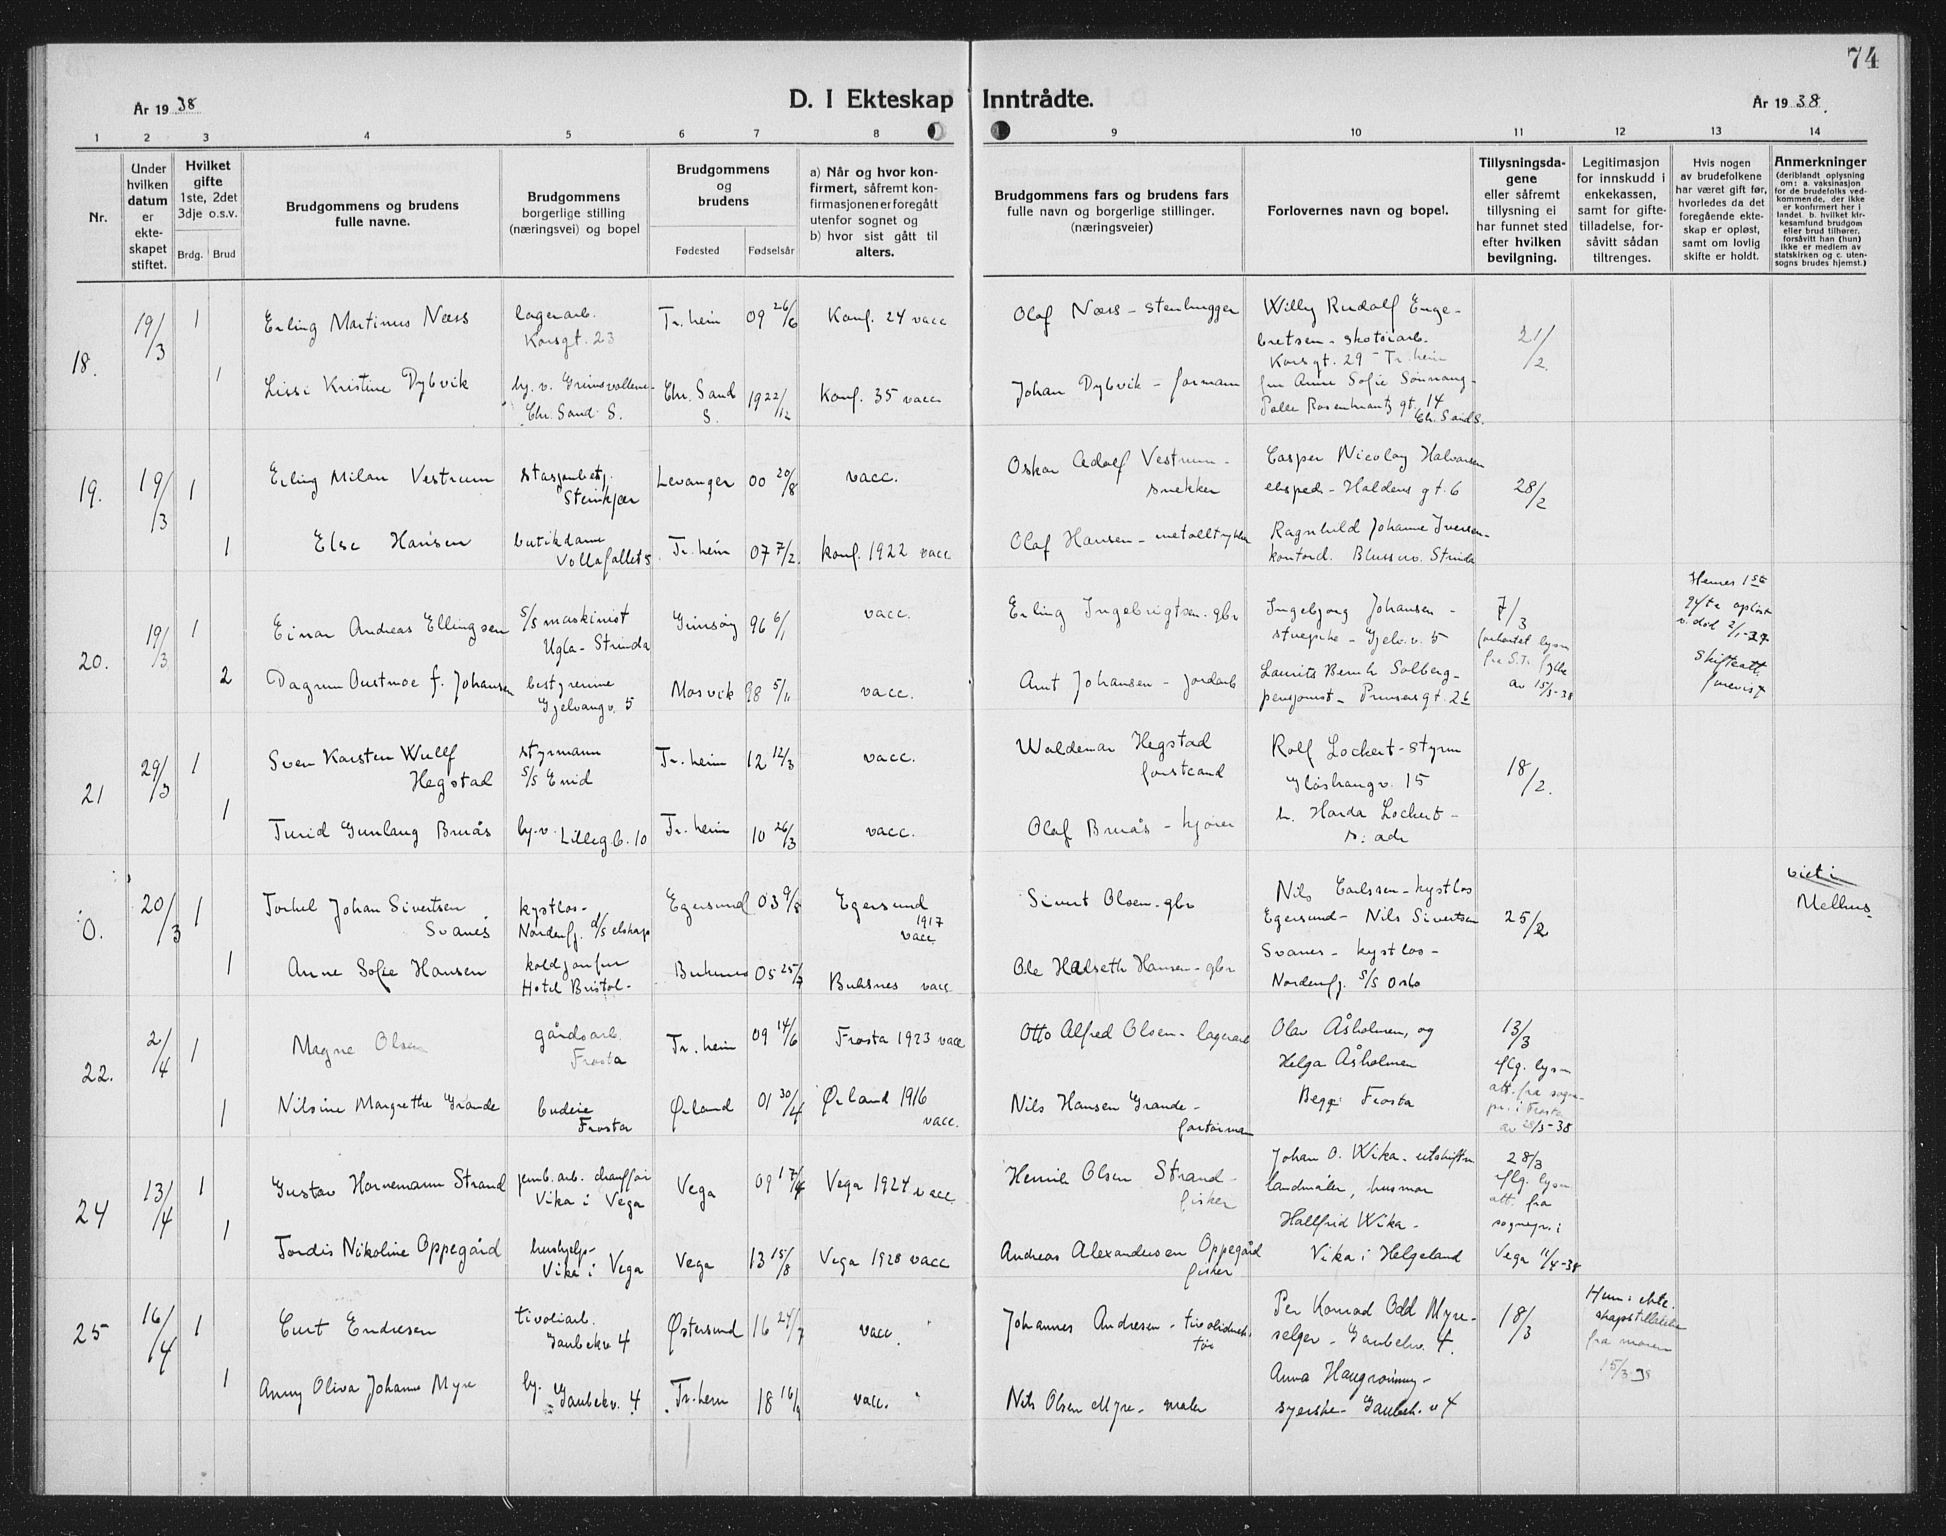 74
År 1938
D. I Ekteskap Inntrådte.
År 1938.
1 2 3 4 5 6 7 8 9 10 11 12 13 14
Nr.
Under hvilken datum er ekteskapet stiftet.
Hvilket gifte 1ste, 2det 3dje o.s.v.
Brdg. Brud
Brudgommens og brudens fulle navne.
Brudgommens borgerlige stilling (næringsvei) og bopel
Brudgommens og brudens
Fødested Fødselsår
a) Når og hvor konfirmert, såfremt konfirmasjonen er foregått utenfor sognet og b) hvor sist gått til alters.
Brudgommens fars og brudens fars fulle navn og borgerlige stillinger. (næringsveier)
Forlovernes navn og bopel.
Tillysningsdagene eller såfremt tillysning ei har funnet sted efter hvilken bevilgning.
Legitimasjon for innskudd i enkekassen, samt for giftetilladelse, forsåvitt sådan tiltrenges.
Hvis nogen av brudefolkene har været gift før, hvorledes da det foregående ekteskap er opløst, samt om lovlig skifte er holdt.
Anmerkninger (deriblandt oplysning om: a. vaksinasjon for de brudefolks vedkommende, der ikke er konfirmert her i landet. b. hvilket kirkesamfund brudgom eller brud tilhører, forsåvitt han (hun) ikke er medlem av statskirken og c. utensogns brudes hjemst.)
18. 19/3 1 Erling Martinus Næss lagerarb. Korsgt. 23 Tr.heim 09 26/6 Konf. 24 vacc Olaf Næss - stenhugger Willy Rudolf Engebretsen - skotøiarb. Korsgt. 29 - Tr.heim 21/2.
1 Lissi Kristine Dybvik hj. v. Grimsvollene- Chr. Sand S. Chr. Sand S. 19 22/12 Konf. 35 vacc Johan Dybvik - formann frn Anne Sofie Sønnang - Palle Rosenkrantz gt. 14 Chr. Sand S.
19. 19/3 1 Erling Milan Vestrum stasjonbetj. Steinkjær Levanger 00 20/8 vacc. Oskar Adolf Vestrum - snekker Casper Nicolay Halvorsen eksped - Haldens gt. 6 28/2
1 Else Hansen butikdame Vollafallet 5 Tr.heim 07 7/2. konf. 1922 vacc Olof Hansen - metalltrykker Ragnhild Johanne Iversen - kontord. Blussuv. Strinda
20. 19/3 1 Einar Andreas Ellingsen s/s maskinist Ugla - Strinda Grimsøy 96 6/1 vacc. Erling Ingebrigtsen. gbr Ingebjørg Johansen - stuepike - Gjelv. v. 5 7/3 forkortet lysn fra S.Tr. fylke av 15/3-38 Hennes 1ste gifte opløst v. død 2/1-37 Skifteatt. forevist
2 Dagrun Oustmoe f. Johansen bestyrerinne Gjelvangv. 5 Mosvik 98 5/11 vacc. Arnt Johansen - jordarb Laurits Bernh Solberg - pensjonist - Prinsens gt. 2b
21 29/3 1 Sven Karsten Wulff Hegstad styrmann s/s Enid Tr.heim 12 12/3 vacc. Waldemar Hegstad forstcand Rolf Lockert - styrm Gløshaugv. 15 18/2.
1 Turid Gunlaug Bruås hj. v. Lillegb. 10 Tr.heim 10 26/3 vacc. Olaf Bruås - kjører fr. Harda Lockert - s: adr
0. 20/3 1 Torkel Johan Sivertsen Svanes kystlos - Nordenfj. d/s elskap Egersund 03 9/8 Egersund 1917 vacc Sivert Olsen - gbr Nils Carlssen - kystlos Egersund - Nils Sivertsen 25/2 viet i Melhus
1 Anne Sofie Hansen koldjomfru Hotel Bristol - Buksnes 05 25/7 Buksnes vacc Ole Halseth Hansen - gbr Svanes - kystlos - Nordenfj. s/s Oslo
22. 2/4 1 Magne Olsen gårdsarb. Frosta Tr.heim 09 14/6 Frosta 1923 vacc Otto Alfred Olsen - lagerarb Olav Åsholmen, og Helga Åsholmen 13/3 iflg. lysn att. fra sogne- pr. i Frosta av 28/3-38
1 Nilsine Margrethe Grande budeie Frosta Ørland 01 30/4 Ørland 1916 vacc. Nils Hansen Grande - Begge Frosta
24 13/4 1 Gustav Hornemann Strand jernb.arb. chauffør Vika i Vega Vega 09 17/4 Vega 1924 vacc Henrik Olsen Strand - fisker Johan O. Wika - utskiftn landmåler, husmor 28/3 iflg. lysn att. fra sognepr. i Vega 11/4-38
1 Tordis Nikoline Oppegård hushjelp - Vika i Vega Vega 13 15/8 Vega 1928 vacc Andreas Alexandersen Oppegård fisker Hallfrid Wika - Vika i Helgeland
25 16/4 1 Curt Endresen tivoliarb. Gaubekv. 4 Østersund 16 24/7 vacc. Johannes Andresen - tivolidirektør Per Konrad Odd Myre - selger - Gaubekv. 4. 18/3 Hun: ekteskapstillatelse fra moren 15/3-38
1 Anny Oliva Johanne Myre hj. - Gaubekv. 4 Tr.heim 18 16/9 vacc. Nils Olsen Myre - maler Anna Haugrønning - syerske - Gaubek. v 4